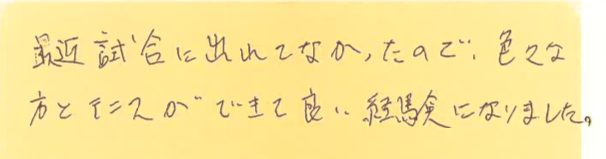 最近試合に出れてなかったので、色々な
方とテニスができて良い経験になりました。